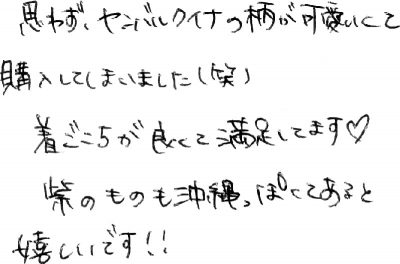 思わず、ヤンバルクイナの柄が可愛いくて
購入してしまいました(笑)
着ごこちが良くて満足してます♡
紫のものも沖縄っぽくてあると
嬉しいです!!